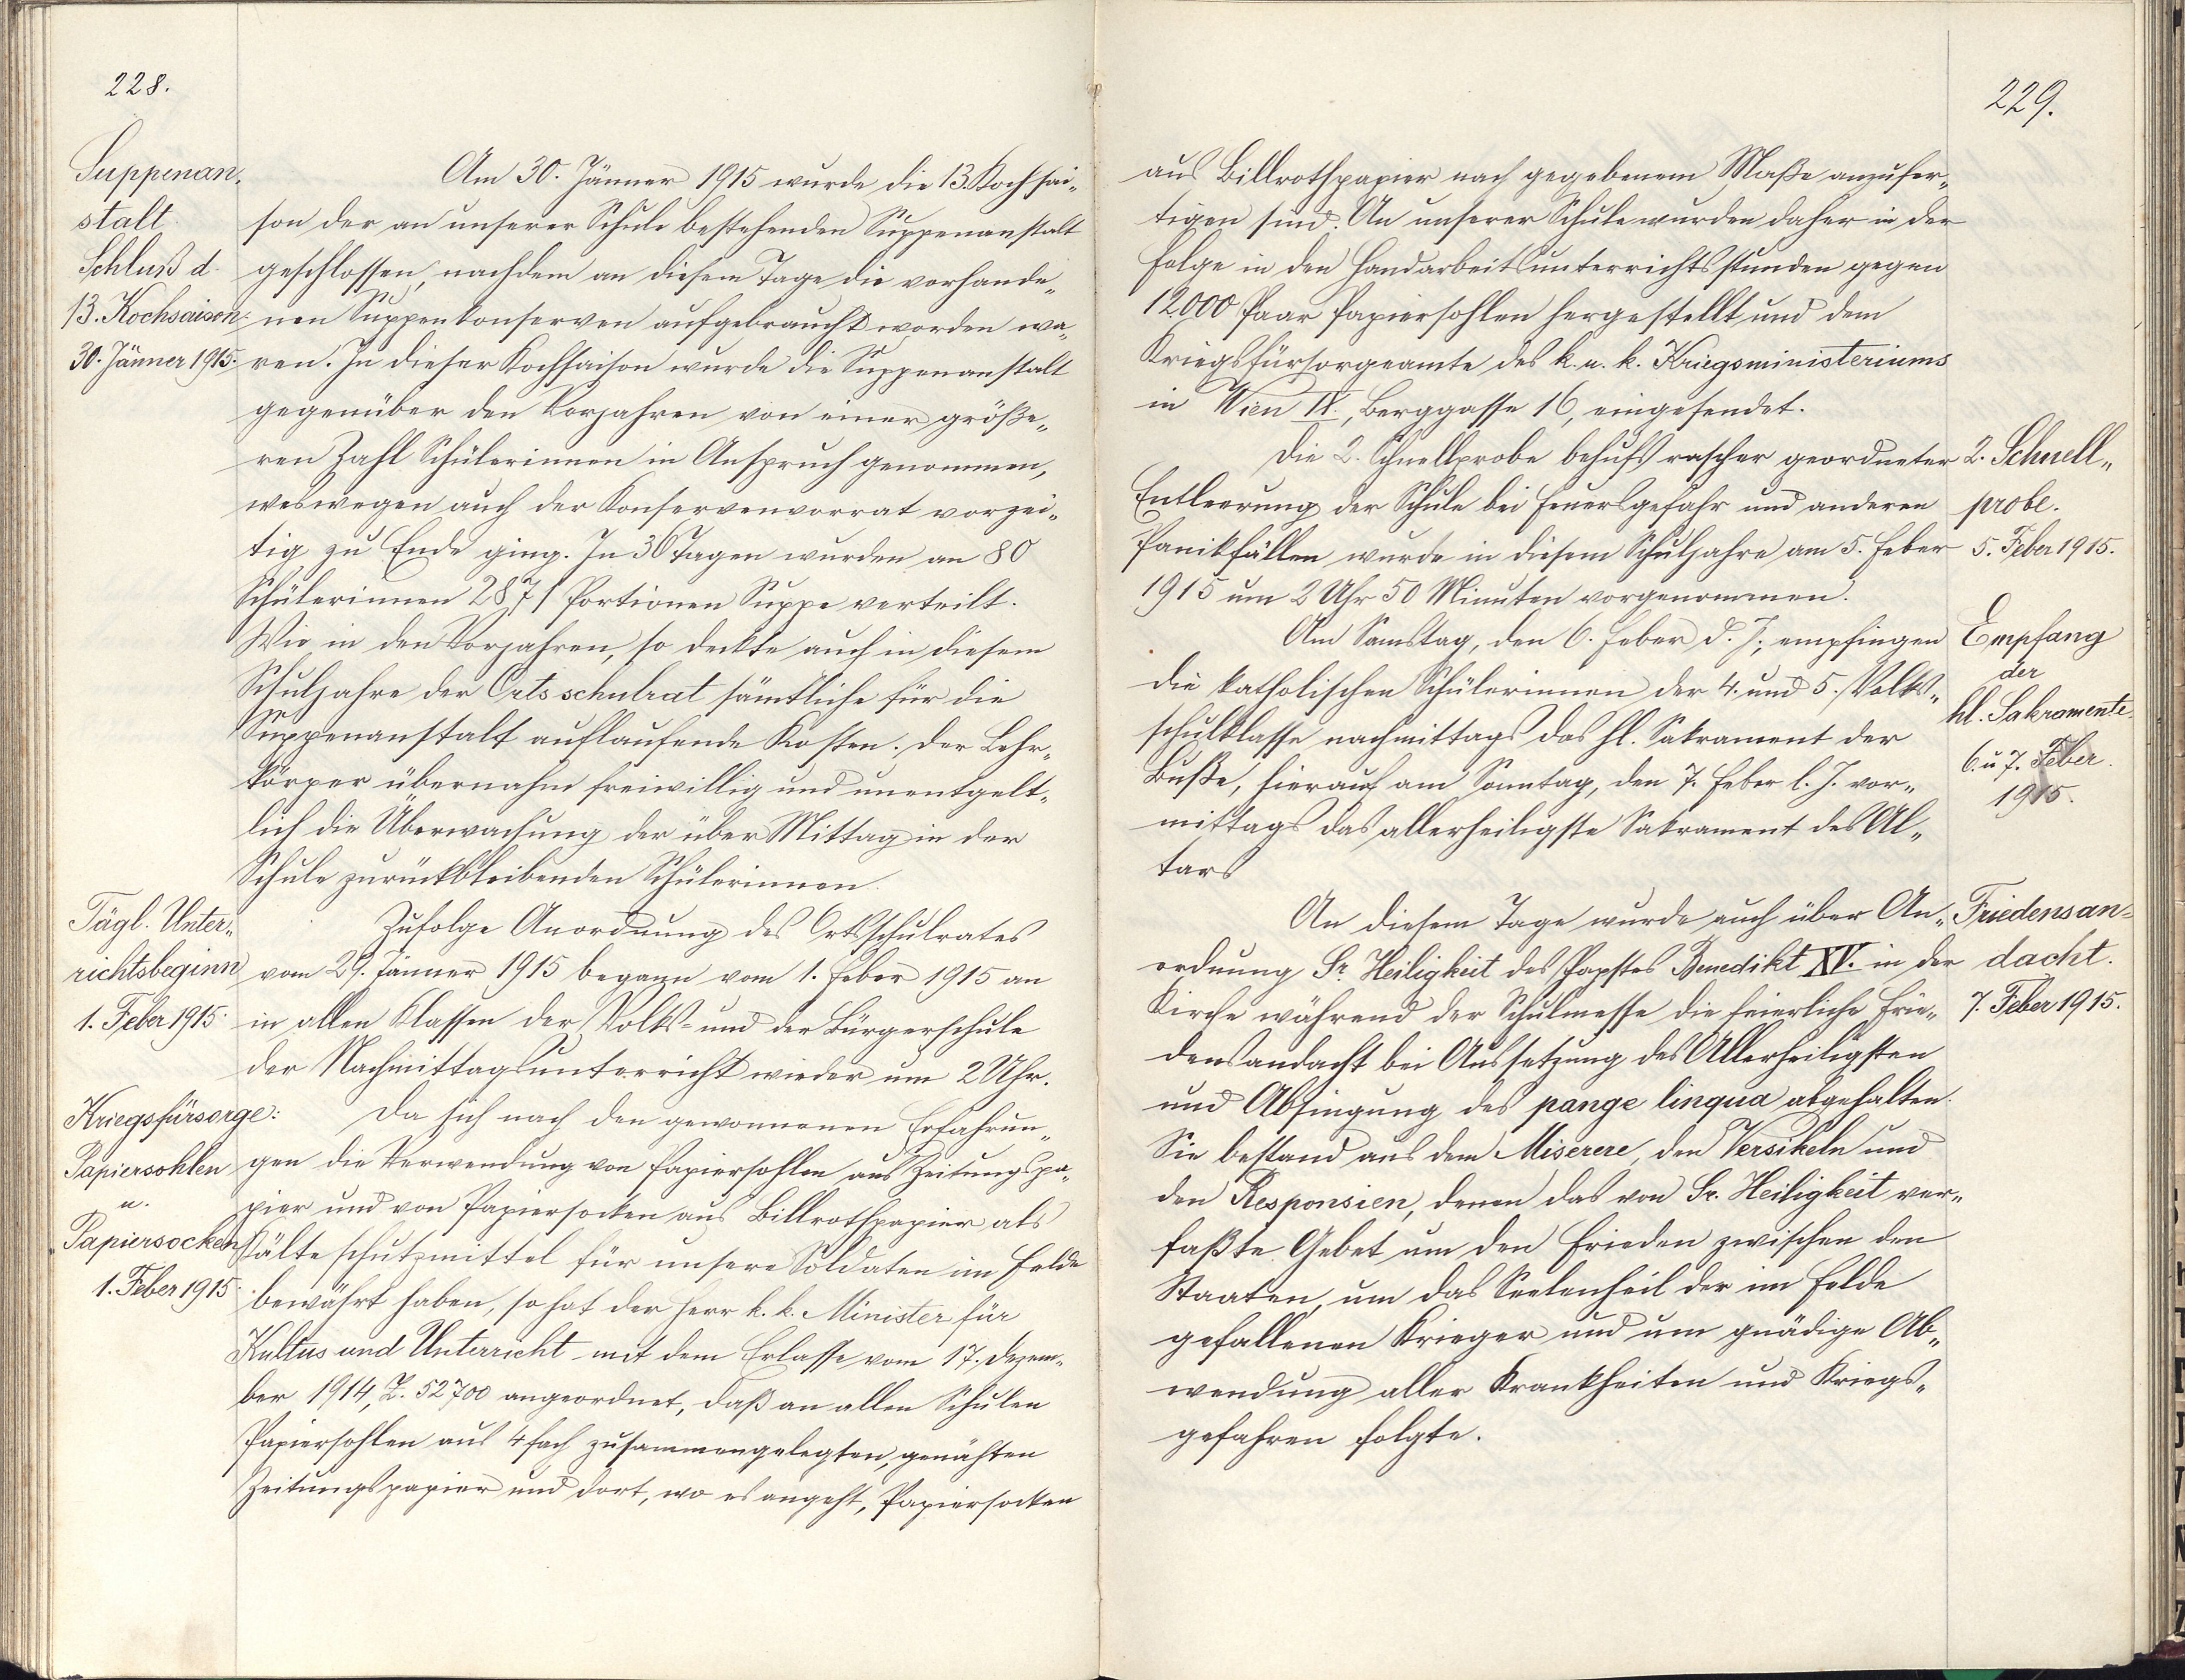 228.
Suppenan„
stalt
Schluß d.
13. Kochsaison:
30. Jänner 1915.
Am 30. Jänner 1915 wurde die 13. Kochsai„
son der an unserer Schule bestehenden Suppenanstalt
geschlossen, nachdem an diesem Tage die vorhande„
nen Suppenkonserven aufgebraucht worden wa„
ren. In dieser Kochsaison wurde die Suppenanstalt
gegenüber den Vorjahren von einer größe„
ren Zahl Schülerinnen in Anspruch genommen,
weswegen auch der Konservenvorrat vorzei„
tig zu Ende ging. In 36 Tagen wurden an 80
Schülerinnen 2871 Portionen Suppe verteilt.
Wie in den Vorjahren, so deckte auch in diesem
Schuljahre der Ortsschulrat sämtliche für die
Suppenanstalt auflaufende Kosten. Der Lehr„
körper übernahm freiwillig und unentgelt„
lich die Überwachung der über Mittag in der
Schule zurückbleibenden Schülerinnen.
Tägl. Unter„
richtsbeginn
1. Feber 1915.
Zufolge Anordnung des Ortsschulrates
vom 29. Jänner 1915 begann vom 1. Feber 1915 an
in allen Klassen der Volks- und der Bürgerschule
der Nachmittagsunterricht wieder um 2 Uhr.
Kriegsfürsorge:
Papiersohlen
u.
Papiersocken
1. Feber 1915.
Da sich nach den gewonnenen Erfahrun„
gen die Verwendung von Papiersohlen aus Zeitungspa„
pier und von Papiersocken aus Billrothpapier als
Kälteschutzmittel für unsere Soldaten im Felde
bewährt haben, so hat der Herr k. k. Minister für
Kultus und Unterricht mit dem Erlasse vom 17. Dezem„
ber 1914, Z. 52700 angeordnet, daß an allen Schulen
Papiersohlen aus 4fach zusammengelegten, genähten
Zeitungspapier und dort, wo es angeht, Papiersocken
229.
aus Billrothpapier nach gegebenem Maße anzufer„
tigen sind. An unserer Schule wurden daher in der
Folge in den Handarbeitsunterrichtsstunden gegen
12000 Paar Papiersohlen hergestellt und dem
Kriegsfürsorgeamte des k. u. k. Kriegsministeriums
in Wien IX., Berggasse 16, eingesendet.
Die 2. Schnellprobe behufs rascher geordneter
Entleerung der Schule bei Feuersgefahr und anderen
Panikfällen wurde in diesem Schuljahre am 5. Feber
1915 um 2 Uhr 50 Minuten vorgenommen.
2. Schnell„
probe.
5. Feber 1915.
Am Samstag, den 6. Feber d. J., empfingen
die katholischen Schülerinnen der 4. und 5. Volks„
schulklasse nachmittags das hl. Sakrament der
Buße, hierauf am Sonntag, den 7. Feber l. J. vor„
mittags das allerheiligste Sakrament des Al„
tars
Empfang
der
hl. Sakramente.
6. u 7. Feber.
1915.
An diesem Tage wurde auch über An„
ordnung Sr. Heiligkeit des Papstes Benedikt XV. in der
Kirche während der Schulmesse die feierliche Frie„
densandacht bei Aussetzung des Allerheiligsten
und Absingung des pange lingua abgehalten.
Sie bestand aus dem Miserere, den Versikeln und
den Responsien, denen das von Sr. Heiligkeit ver„
faßte Gebet um den Frieden zwischen den
Staaten, um das Seelenheil der im Felde
gefallenen Krieger und um gnädige Ab„
wendung aller Krankheiten und Kriegs„
gefahren folgte.
Friedensan-
dacht.
7. Feber 1915.